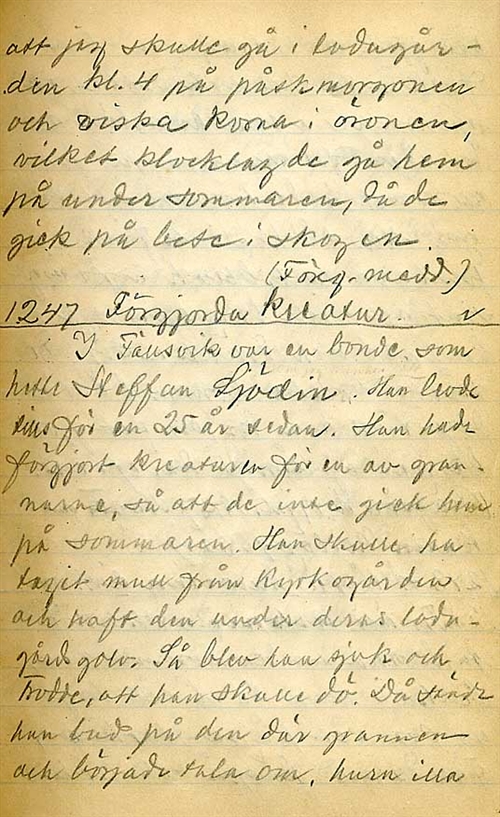 att jag skulle gå i ladugår-
den kl. 4 på påskmorgonen
och viska korna i öronen,
vilket klocklag de gå hem
på under sommaren, då de
gick på bete i skogen.
(Föreg. medd.)
1247 Förgjorda kreatur. v
I Fällsvik var en bonde, som
hette Steffan Sjödin. Han levde
tills för en 25 år sedan. Han hade
förgjort kreaturen för en av gran-
narne, så att de inte gick hem
på sommaren. Han skulle ha
tagit mull från kyrkogården
och haft den under deras ladu-
gårdsgolv. Så blev han sjuk och
trodde, att han skulle dö. Då sände
han bud på den där grannen
och började tala om, huru illa